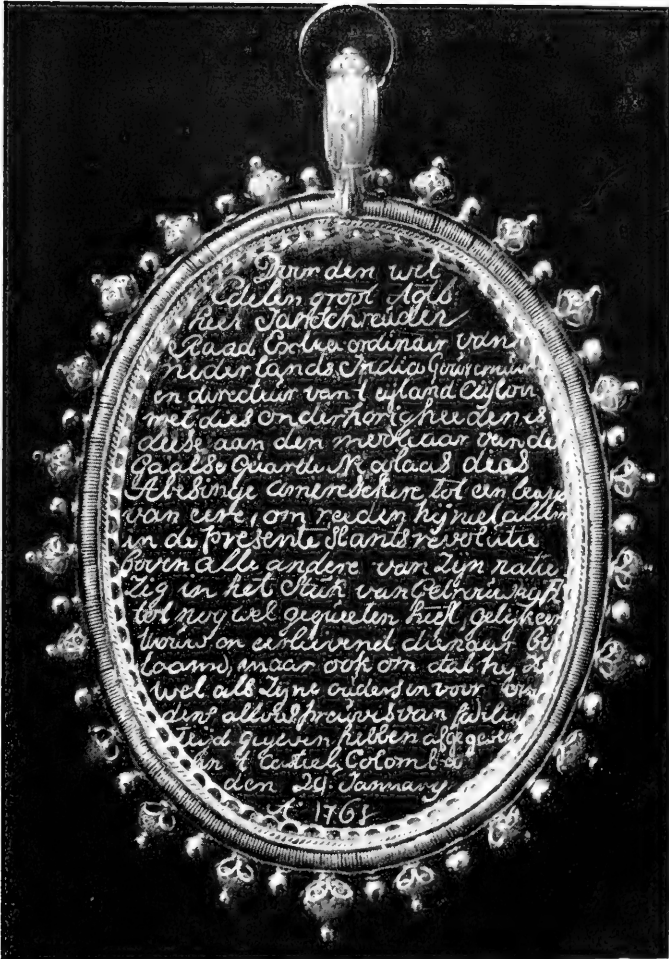 Door den wel
Edelen groot Agtb
heer Jan Schreuder
Raad Extra ordinair van
nederlands India Gouverneur
en directeur van t eijland Ceijlon
met dies onderhorigheeden is
deese aan den modliaar van de
Gaalse Guarde Nicolaas dias
Abesinge Ameresekere tot een
van eere, om reeden hij niet alleen
in de presente Slants revolutie
boven alle andere van Zijn natie
Zig in het Stuk van
tot nog wel gequeeten heeft, gelijk een
trouw en eerlievend dienaar
maar ook om dat hij
wel als Zijne ouders in voor
van
tijd gegeven hebben afgegeven
in 't Casteel Colombo
den 24 Jannuarij
Aº 1761